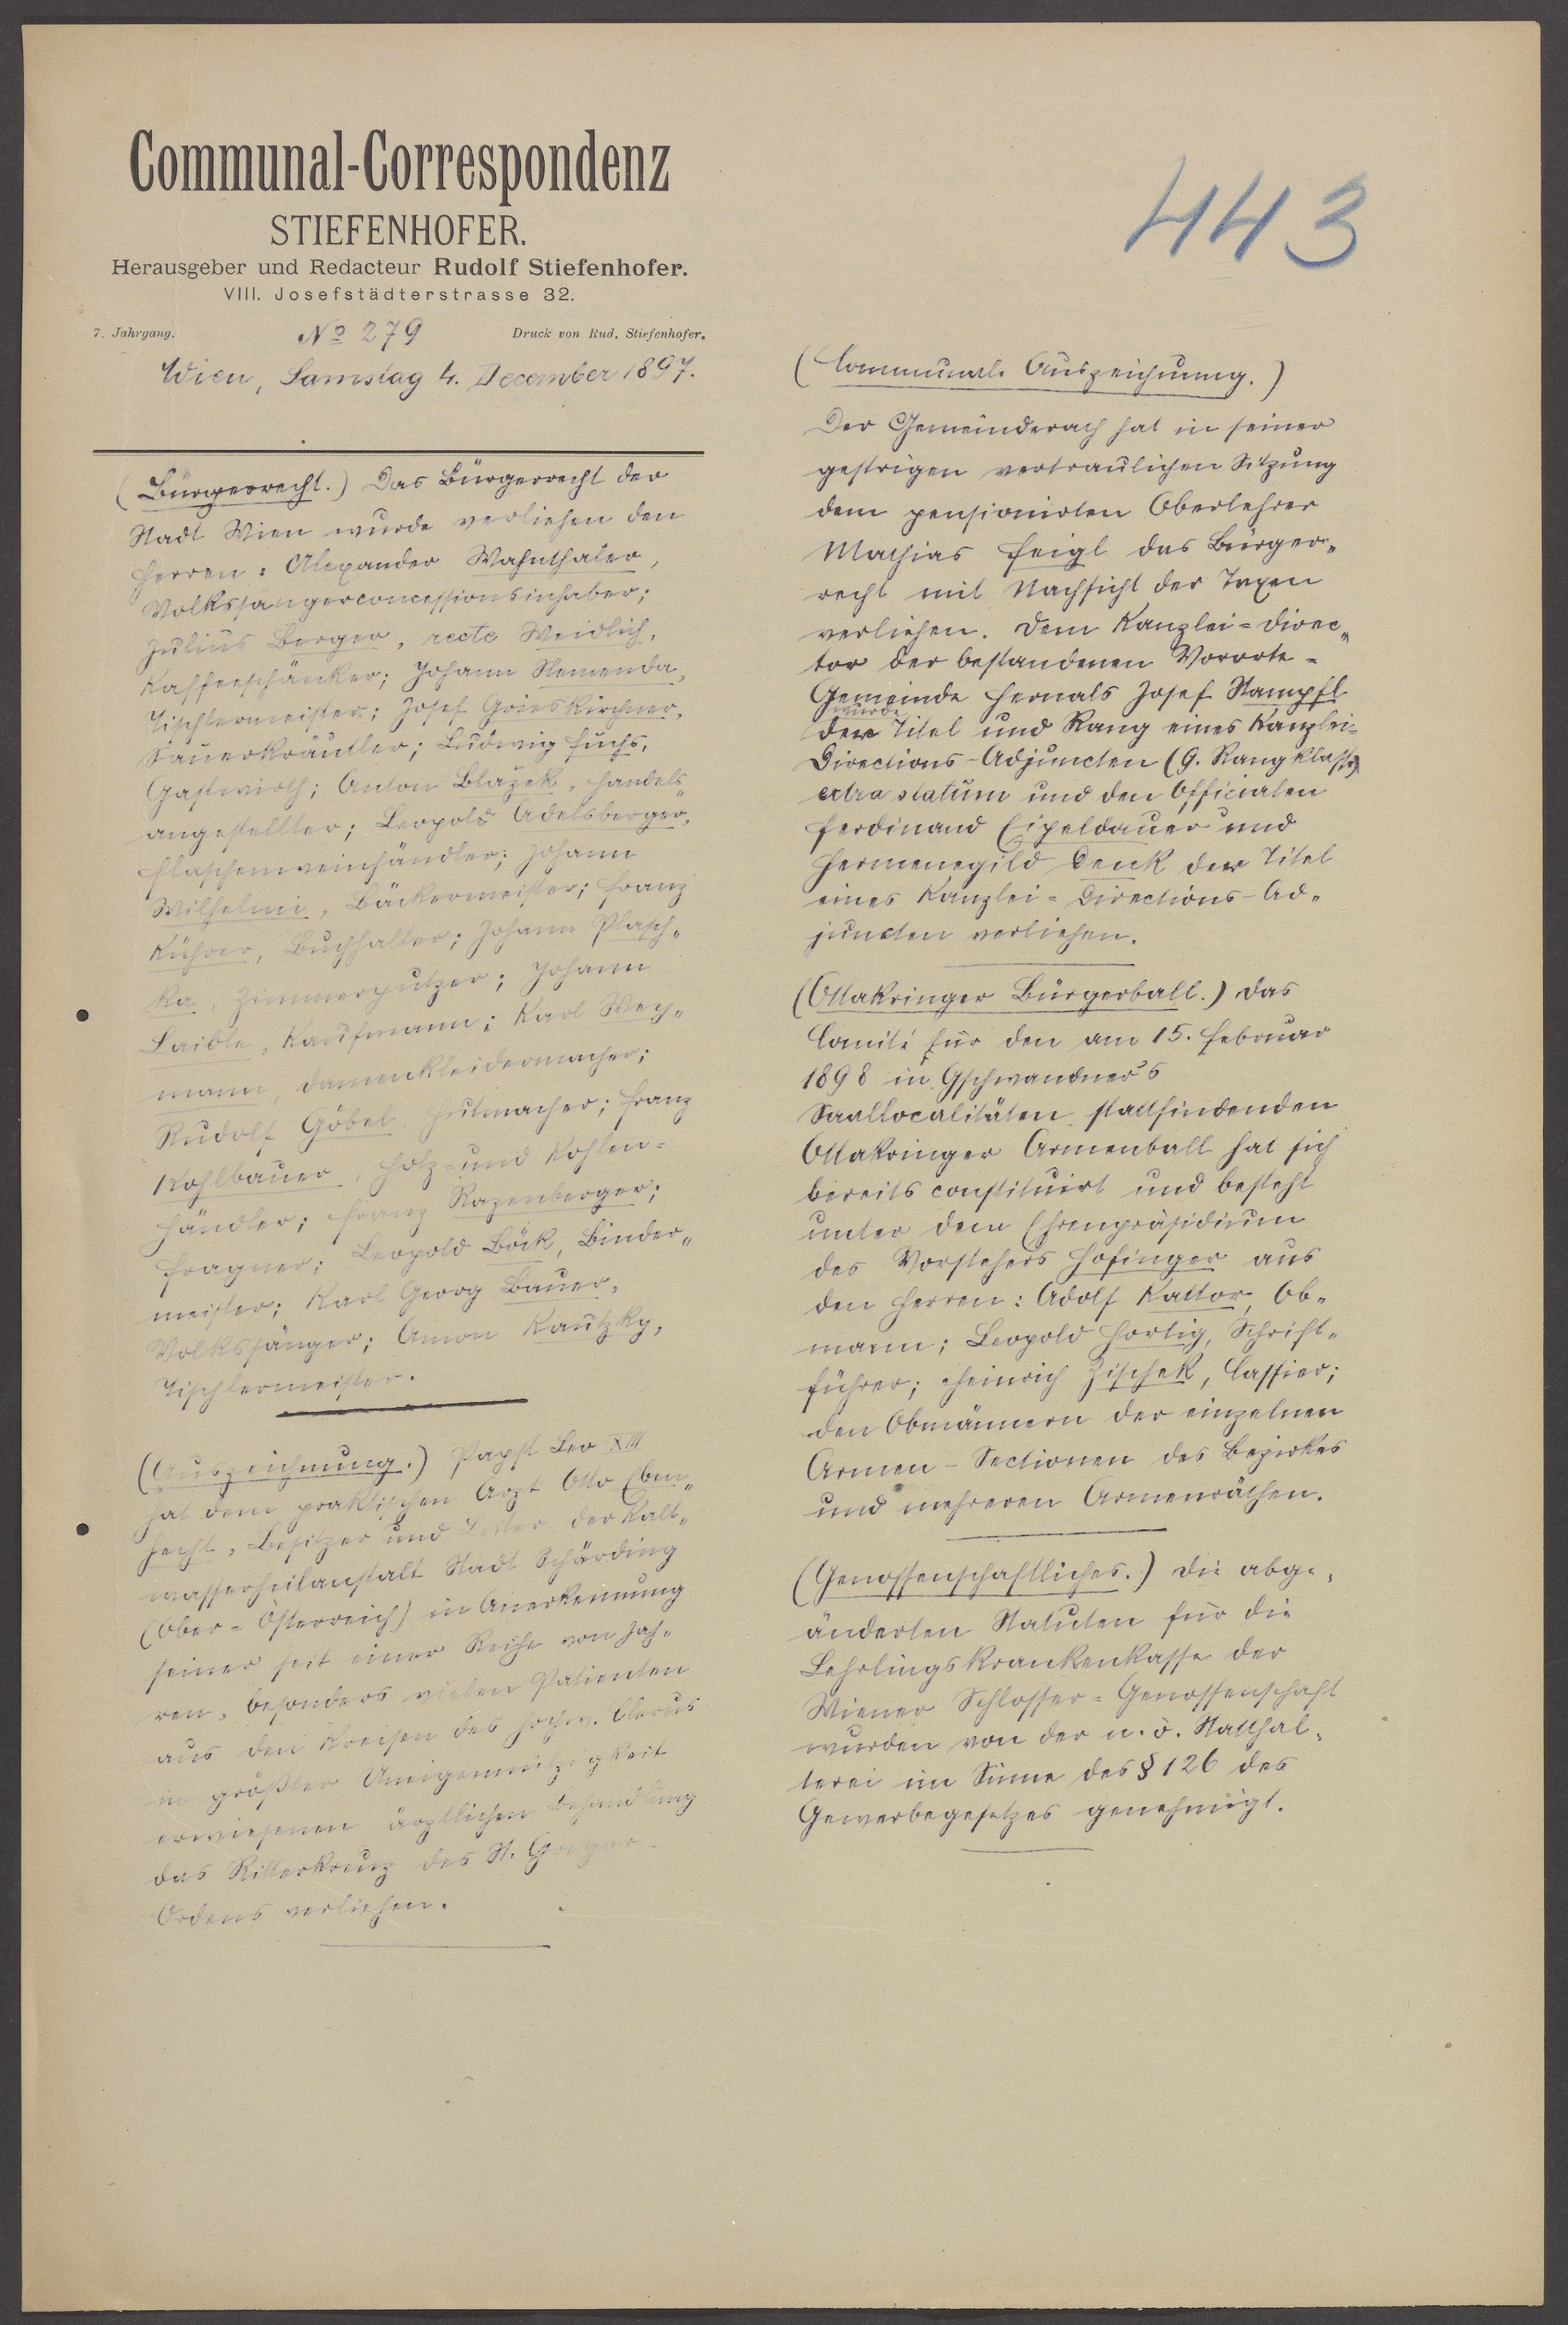 Communal-Correspondenz
STIEFENHOFER.
Herausgeber und Redacteur Rudolf Stiefenhofer.
VIII. Josefstädterstrasse 32.
7. Jahrgang. No 279 Druck von Rud. Stiefenhofer.
Wien, Samstag 4. December 1897.
(Bürgerrecht.) Das Bürgerrecht der
Stadt Wien wurde verliehen den
Herren: Alexander Wahnthaler,
Volkssängerconcessionsinhaber;
Julius Berger, recte Weidlich,
Kaffeeschänker; Johann Nemenda,
Tischlermeister; Josef Grieskirchner,
Sauerkräutler; Ludwig Fuchs,
Gastwirth; Anton Blažek, Handels„
angestellter; Leopold Adelsberger,
Flaschenweinhändler; Johann
Wilhelmi, Bäckermeister; Franz
Kührer, Buchhalter; Johann Plasch„
ka, Zimmerputzer; Johann
Laible, Kaufmann; Karl Wey„
mann, Damenkleidermacher;
Rudolf Göbel Hutmacher; Franz
Kohlbauer, Holz- und Kohlen=
händler; Franz Razenberger;
Fragner; Leopold Böck, Binder„
meister; Karl Georg Bauer,
Volkssänger; Anton Kautzky,
Tischlermeister.
(Auszeichnung.) Papst Leo XIII
hat dem praktischen Arzt Otto Eben„
hecht, Besitzer und Leiter der Kalt„
wasserheilanstalt Stadt Schärding
(Ober-Österreich) in Anerkennung
seiner seit einer Reihe von Jah„
ren, besonders vielen Patienten
aus den Kreisen des hochw. Clerus
in größter Uneigennützigkeit
erwiesenen ärztlichen Behandlung
das Ritterkreuz des St. Gregor-
Ordens verliehen.
443
(Communale Auszeichnung.)
Der Gemeinderath hat in seiner
gestrigen vertraulichen Sitzung
dem pensionirten Oberlehrer
Mathias Feigl das Bürger„
recht mit Nachsicht der Taxen
verliehen. Dem Kanzlei-Direc„
tor der bestandenen Vororte-
Gemeinde Hernals Josef Stampfl
wurde
der Titel und Rang eines Kanzlei-
Directions-Adjuncten (9. Rangklasse)
extra statum und den Officialen
Ferdinand Eipeldauer und
Hermenegild Denk der Titel
eines Kanzlei-Directions-Ad„
juncten verliehen.
(Ottakringer Bürgerball.) Das
Comité für den am 15. Februar
1898 in Gschwandner's
Saallocalitäten stattfindenden
Ottakringer Armenball hat sich
bereits constituirt und besteht
unter dem Ehrenpräsidium
des Vorstehers Hofinger aus
den Herren: Adolf Kattor, Ob„
mann; Leopold Hortig, Schrift„
führer; Heinrich Zischek, Cassier;
den Obmännern der einzelnen
Armen-Sectionen des Bezirkes
und mehreren Armenräthen.
(Genossenschaftliches.) Die abge„
änderten Statuten für die
Lehrlingskrankenkasse der
Wiener Schlosser-Genossenschaft
wurden von der n. ö. Statthal„
terei im Sinne des § 126 des
Gewerbegesetzes genehmigt.